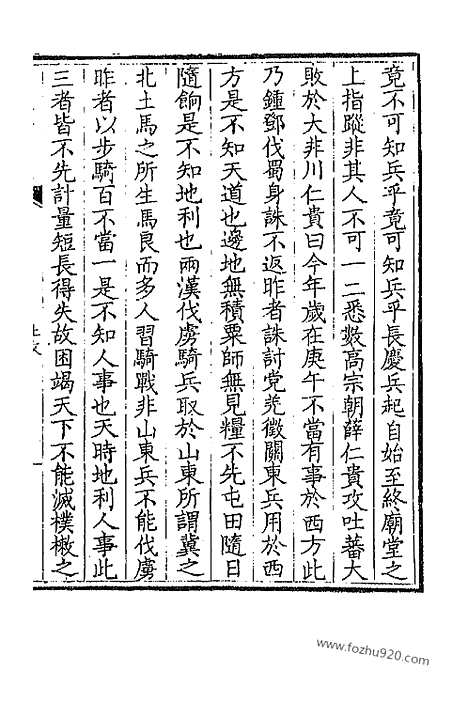 竟不可知兵乎竟可知兵乎長慶兵起自始至終廟堂之
上指蹤非其人不可一二悉數高宗朝薛仁貴攻吐蕃大
敗於大非川仁貴曰今年歲在庚午不當有事於西方此
乃鍾鄧伐蜀身誅不返昨者誅討党羌徵關東兵用於西
方是不知天道也邊地無積粟師無見糧不先屯田隨日
隨餉是不知地利也兩漢伐虜騎兵取於山東所謂冀之
北土馬之所生馬良而多人習騎戰非山東兵不能伐虜
昨者以步騎百不當一是不知人事也天時地利人事此
三者皆不先計量短長得失故困竭天下不能滅樸樕之
www.fozhu920.com